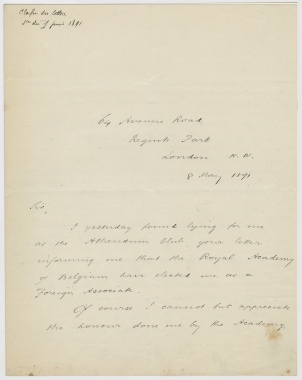 Classe des lettres
5 juin 1891
64 Avenue Road
Regent's Park
London N.W.
8 May 1891
Sir,
I yesterday found lying for me
at the Athenæum Club, your letter
informing me that the Royal Academy
of Belgium have elected me as a
Foreign Associate.
Of course I cannot but appreciate
the honour done me by the Academy,